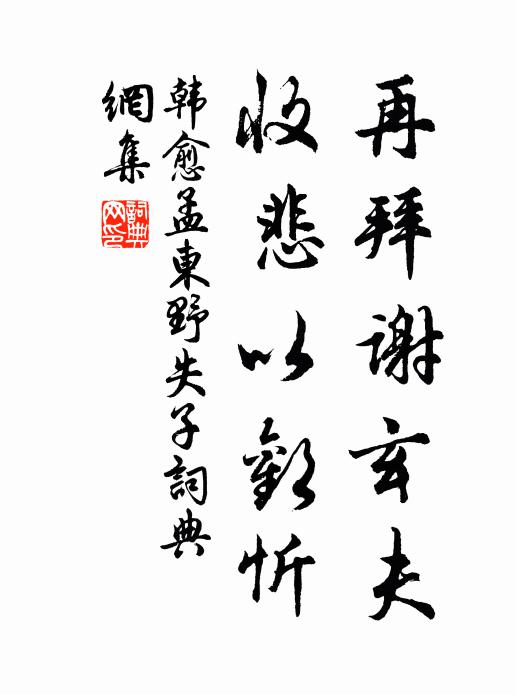 再拜谢玄夫
收悲以歡忻
韩愈孟東野失子詞典
網集
詞典網印